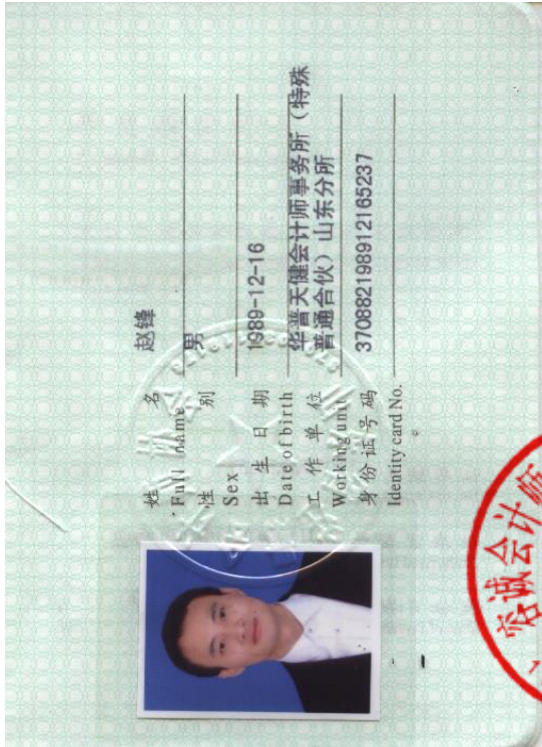 姓 名 赵锋
Full name
性 别 男
Sex
出 生 日 期 1989-12-16
Date of birth
工 作 单 位 华普天健会计师事务所（特殊
Working unit 普通合伙）山东分所
身份证号码 370882198912165237
Identity card No.
容诚会计师